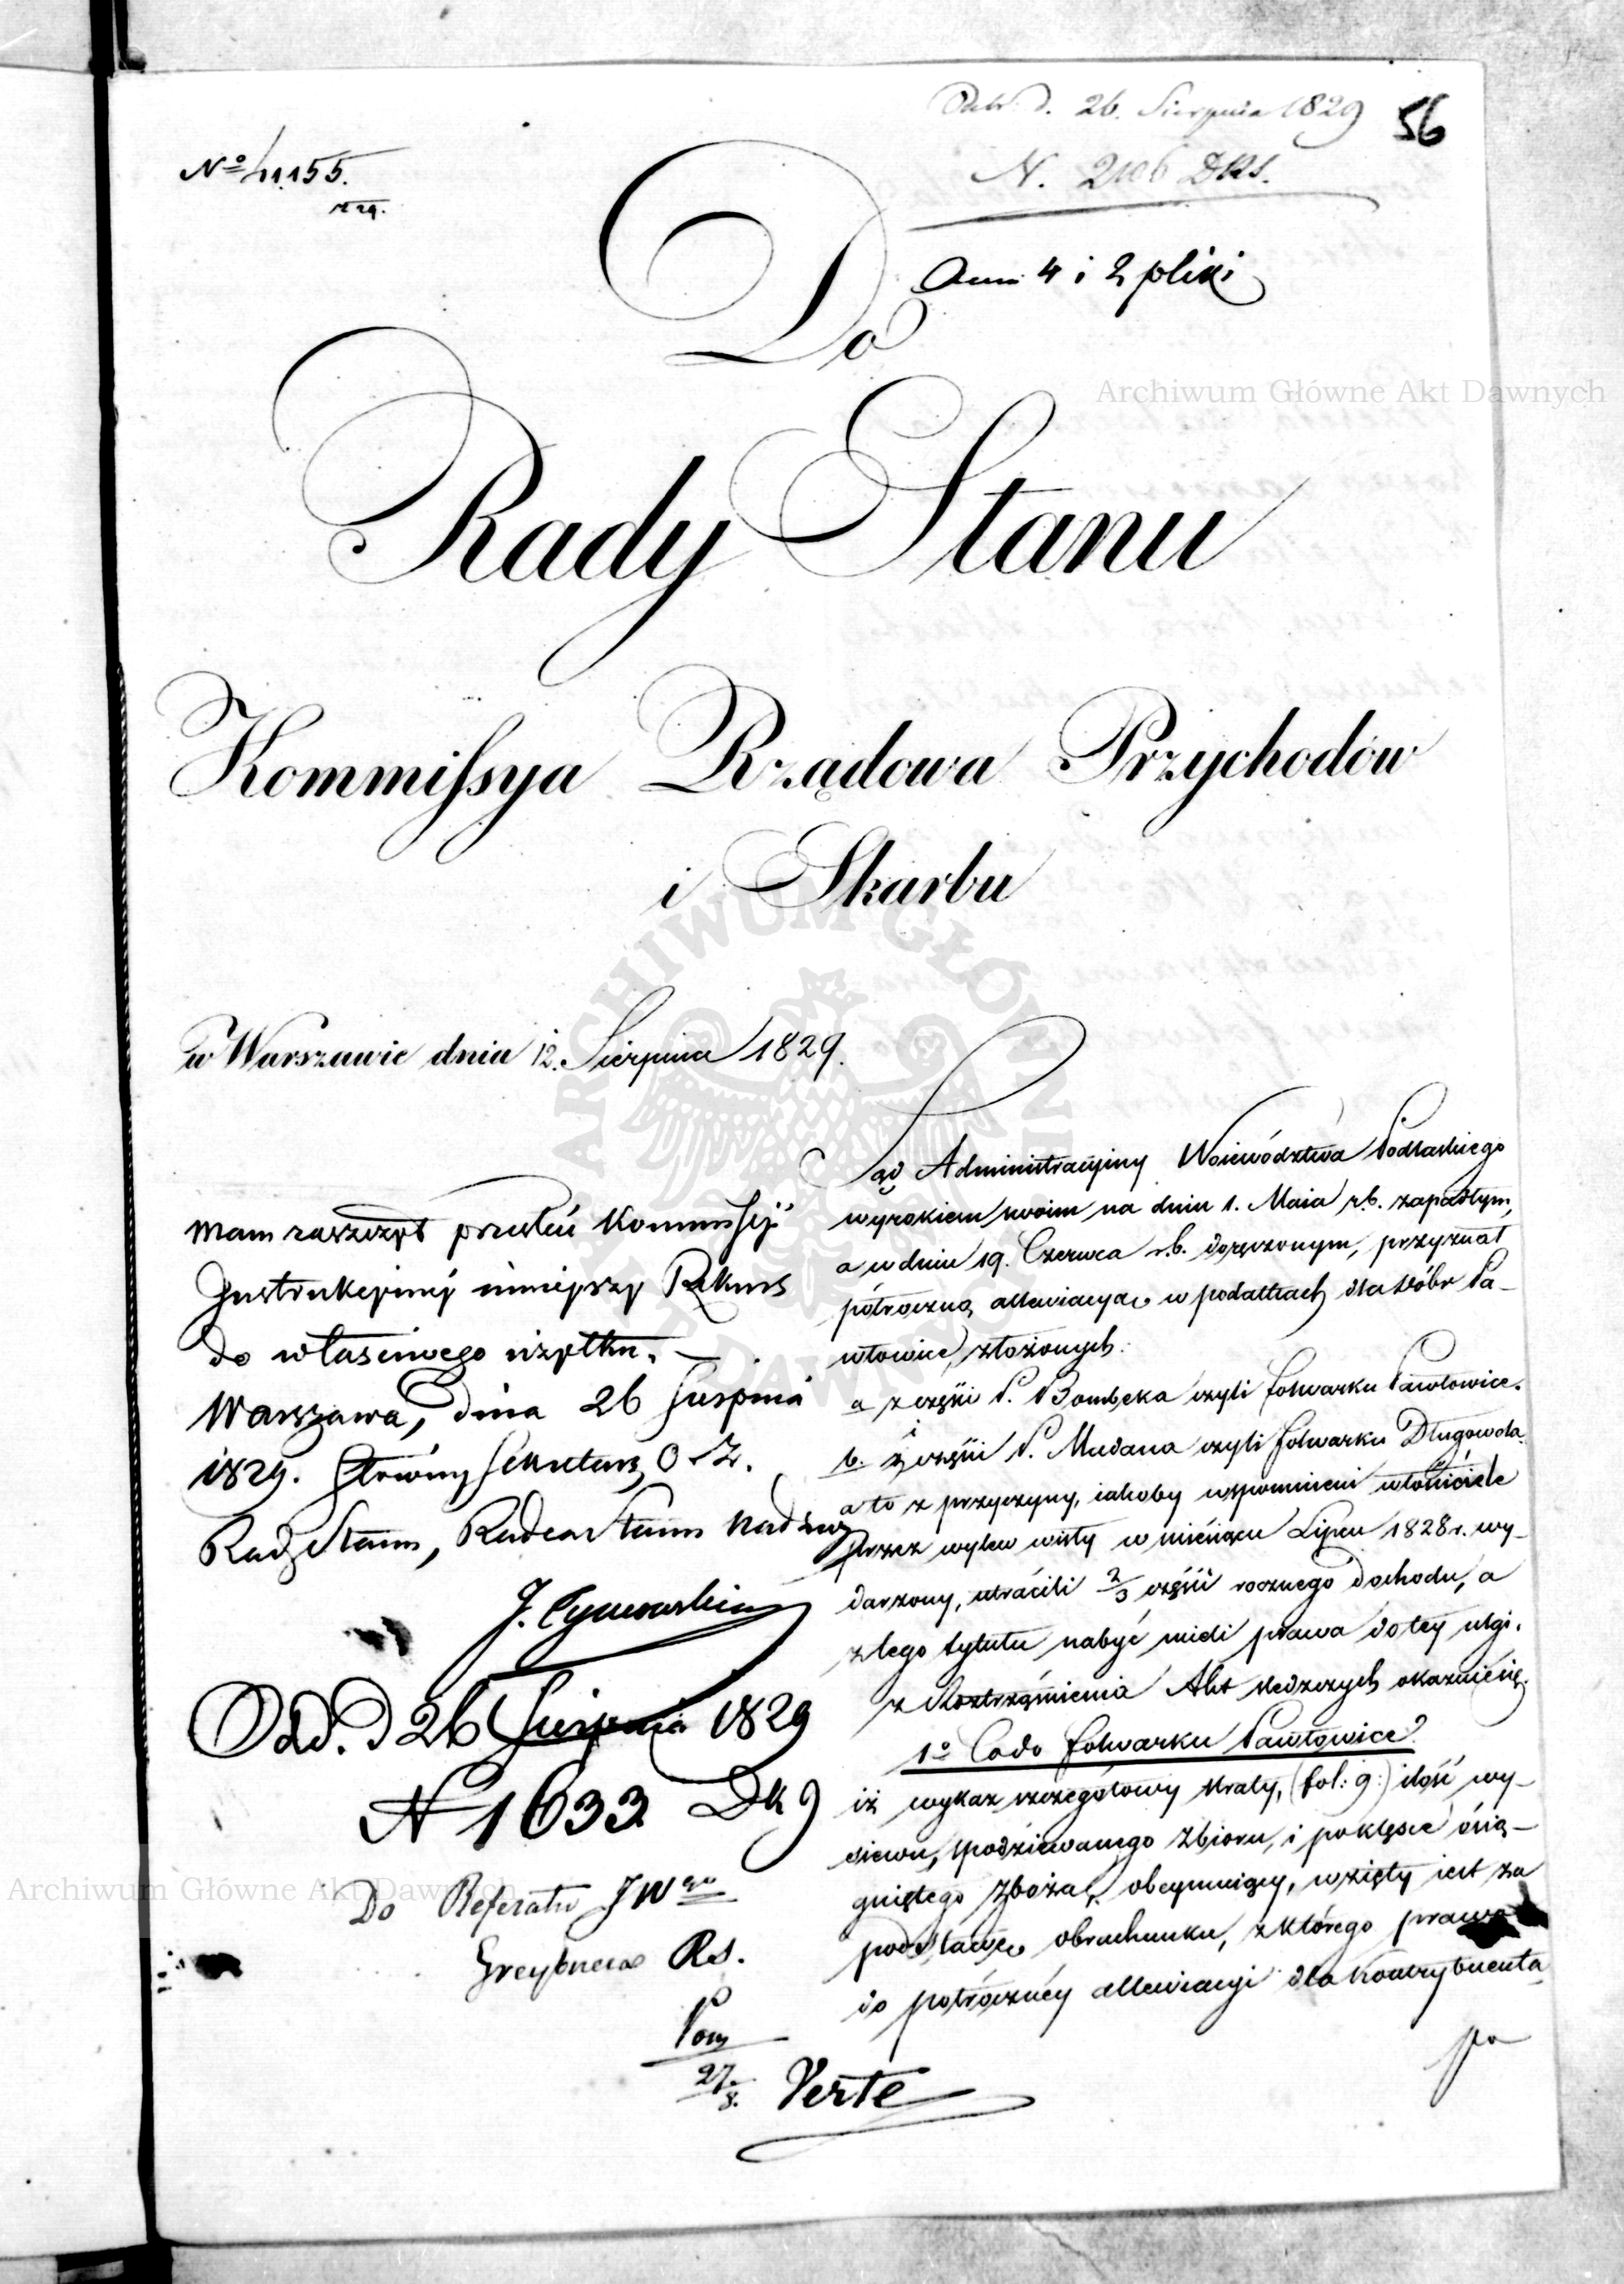 d. 26. Sierpnia 1829
56
N. 2106 DRS.
No 41.155.
r 29.
Ann 4 i 2 pliki
Do
Rady Stanu
Kommissya Rządowa Przychodów
i Skarbu
w Warszawie dnia 12. Sierpnia 1829.
Mam zaszczyt przesłać Kommissyi
Instrukcyinéy ninieyszy Rekurs
do właściwego użytku.
Warszawa, dnia 26 Sierpnia
1829. Główny Sekretarz
Rady Stanu, Radca Stanu Nadzwy
Odd. d 26 Sierpnia 1829
N 1633 Dk 9
Do Referatu JWgo
Rs.
27/8.
Sąd Administracyiny Woiewództwa Podlaskiego
wyrokiem swoim na dniu 1. Maia r.b. zapadłym,
a w dniu 19. Czerwca r.b. doręczonym, przyznał
półroczną allewiacyą w podatkach dla dóbr Pa-
włowice, złożonych:
a z części P. Bombeka czyli folwarku Pawłowice.
b. i z części P. czyli folwarku Długowola
a to z przyczyny, iakoby wspomnieni właściciele
przez wylew wisły w miesiącu Lipcu 1828 r. wy-
darzony, utracili 2/3 części rocznego dochodu, a
z tego tytułu nabyć mieli prawa do tey ulgi.
z Roztrząśnienia Akt śledczych okazuie się,
1o Co do folwarku Pawłowice
iż wykaz szczegółowy straty, (fol: 9:) ilość wy-
siewu, spodziewanego zbioru, i po klęsce osią-
gniętego zboża, obeymuiący, wzięty iest za
podstawę obrachunku, z którego prawo
do półroczney allewiacyi dla Kontrybuenta
po
Verte
Archiwum Główne Akt Dawnych
Archiwum Główne Akt Dawnych
ARCHIWUM GŁÓWNE AKT DAWNYCH